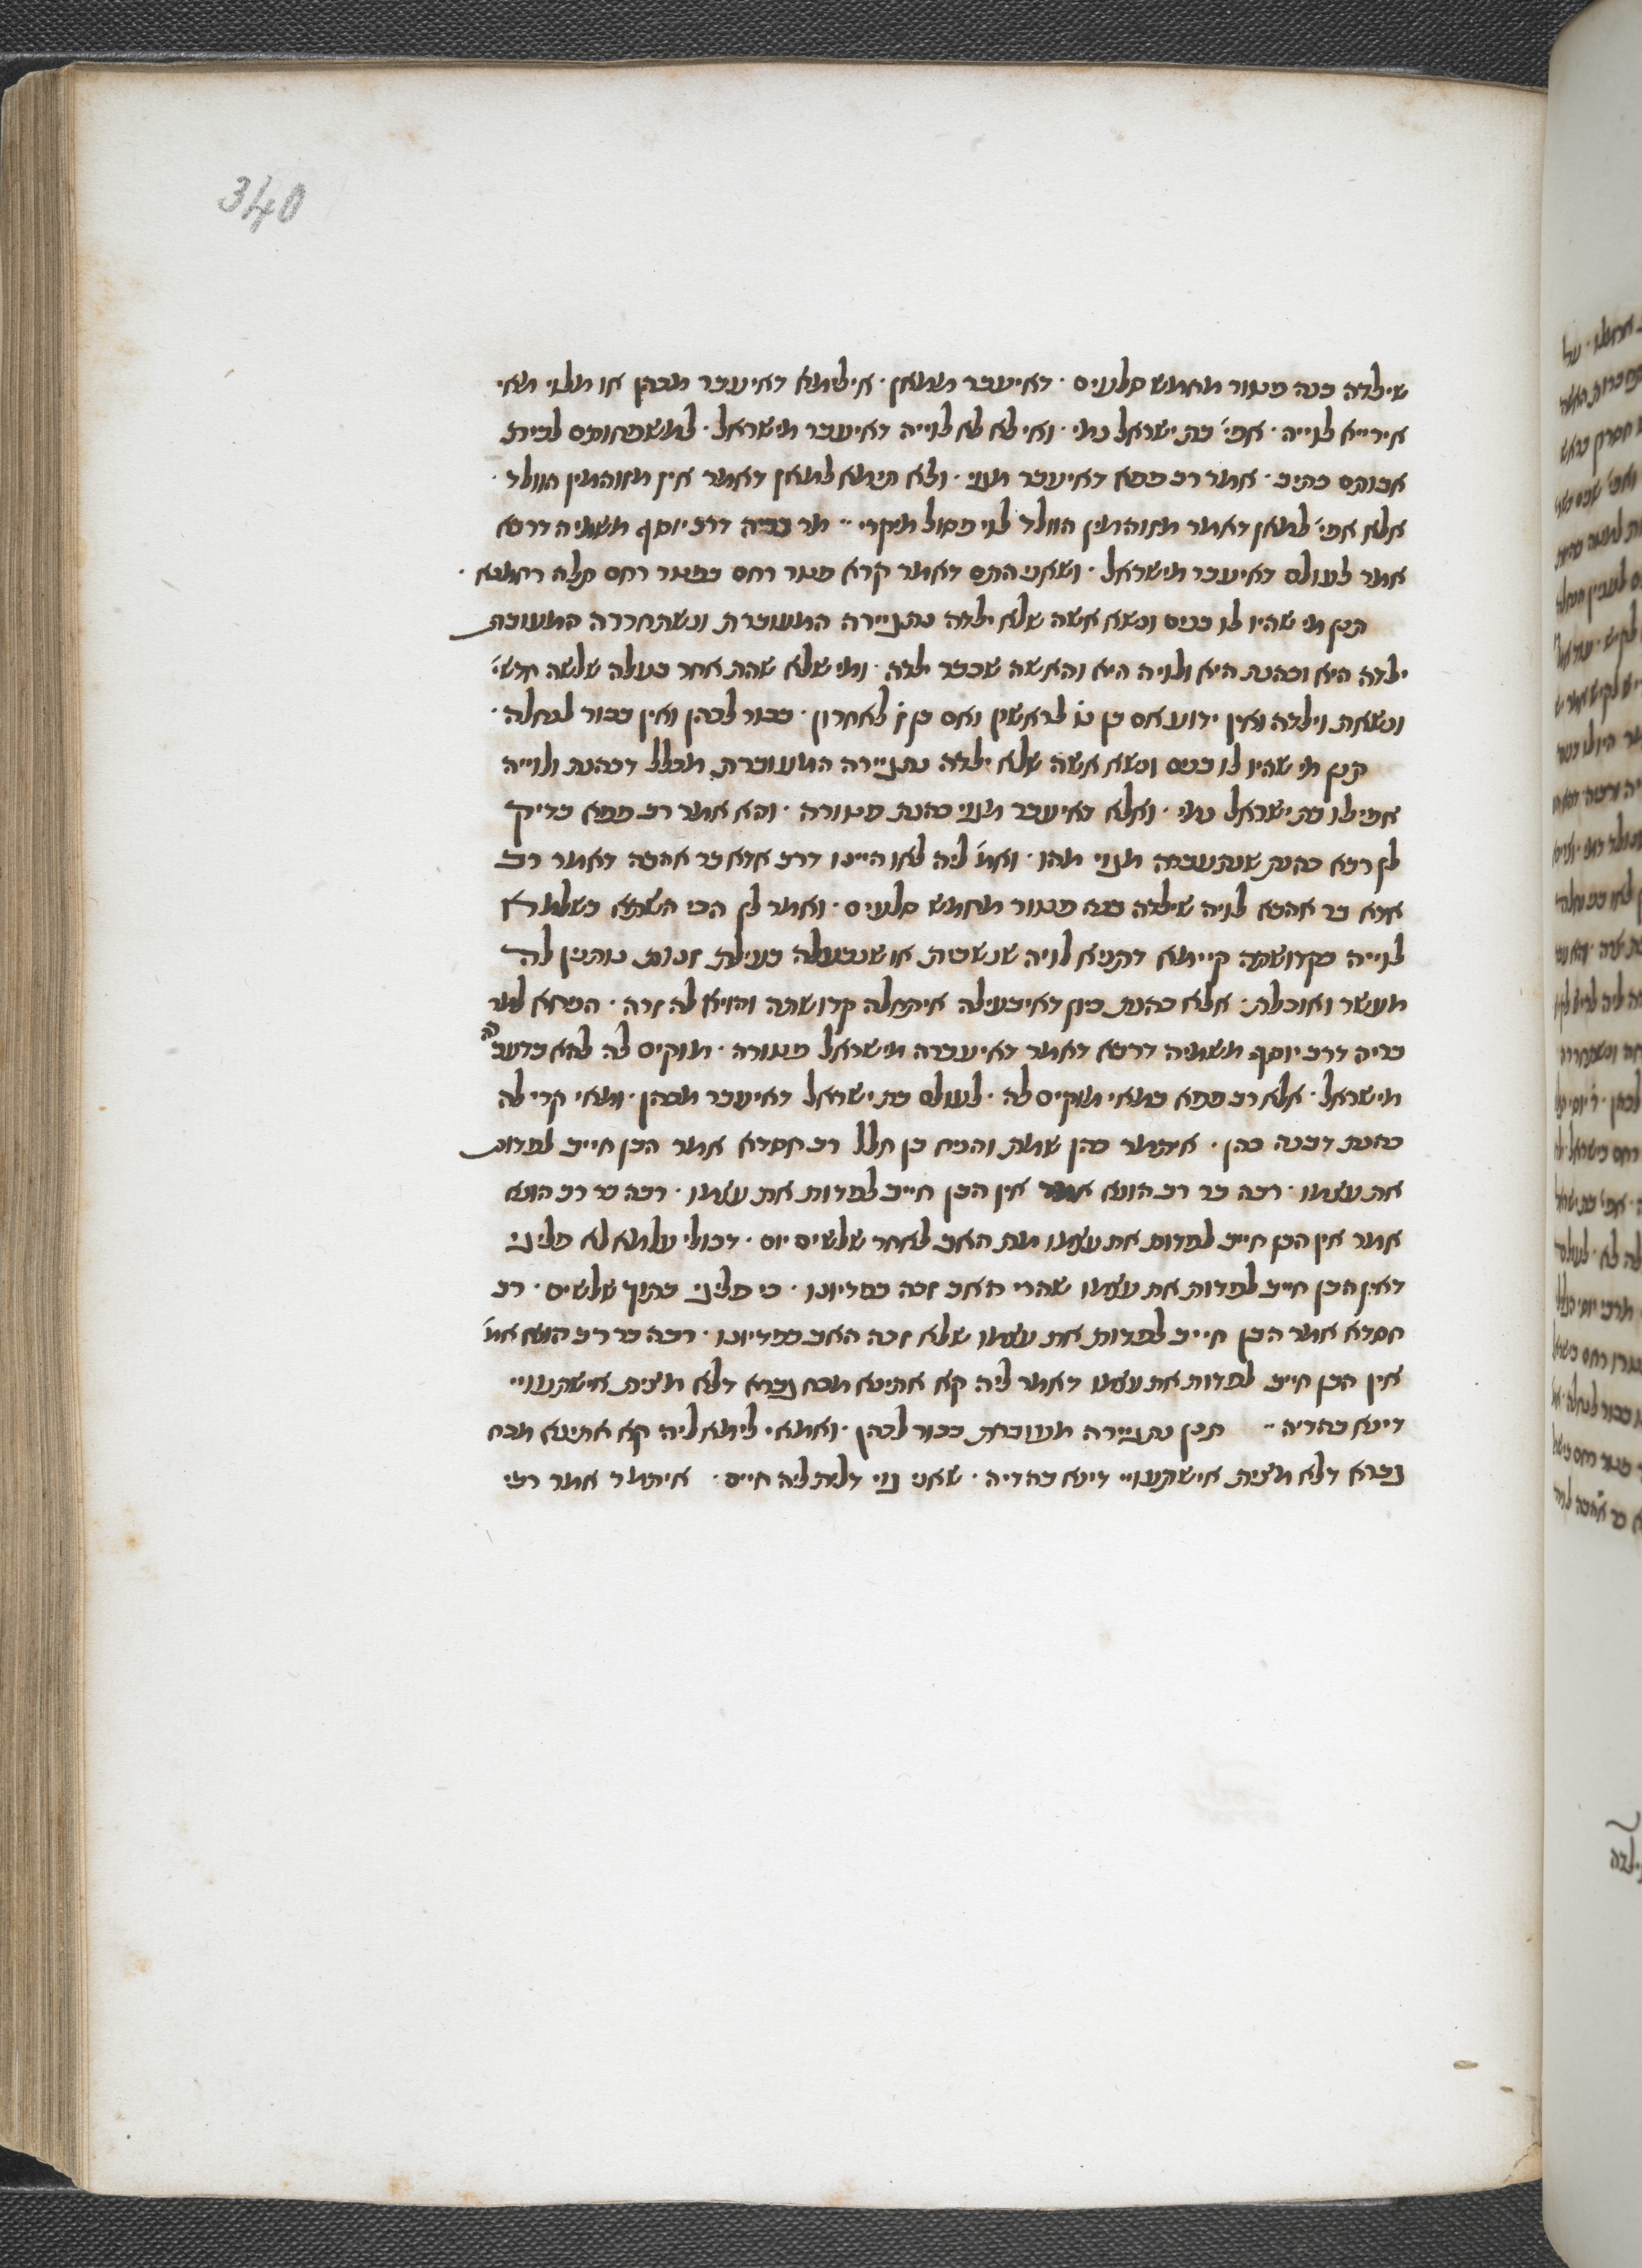 340
שילדה בנה פטור מחמש סלעים · דאיעבר ממאן · אילימא דאיעבר מכהן או מלוי מאי
אירייא לוייה · אפי׳ בת ישראל נמי · ואי לא לא לוייה דאיעבר מישראל · למשפחותם לבית
אבותם כתיב · אמר רב פפא דאיעבר מגוי · ולא תימא למאן דאמר אין מזוהמין הוולד ·
אלא אפי׳ למאן דאמר מזוהמין הוולד לוי פסול מיקרי ·· מר בריה דרב יוסף משמיה דרבא
אמר לעולם דאיעבר מישראל · ושאני התם דאמר קרא פטר רחם בפטר רחם תלה רחמנא ·
תנן מי שהיו לו בנים ונשא אשה שלא ילדה נתגיירה המעוברת ונשתחררה המעוברת
ילדה היא וכהנת היא ולויה היא והאשה שכבר ילדה · ומי שלא שהת אחר בעלה שלשה חדשי׳
ונשאת וילדה ואין ידוע אם בן ט׳ לראשון ואם בן ז׳ לאחרון · בכור לכהן ואין בכור לנחלה ·
קתני מי שהיו לו בנים ונשא אשה שלא ילדה נתגיירה המעוברת מכלל דכהנת ולוייה
אפילו בת ישראל נמי · ואלא דאיעבר מגוי כהנת פטורה · והא אמר רב פפא בדיק
לן רבא כהנת שנתעברה מגוי מהו · ואמ׳ ליה לאו היינו דרב אדא בר אהבה דאמר רב
אדא בר אהבא לויה שילדה בנה פטור מחמש סלעים · ואמר לן הכי השתא בשלמא
לוייה בקדושתה קיימא דתניא לויה שנשבית או שנבעלה בעילת זנות נותנין לה
מעשר ואוכלת · אלא כהנת כיון דאיבעילה איתחלה קדושתה והויא לה זרה · הניחא למר
בריה דרב יוסף משמיה דרבא דאמר דאיעברה מישראל פטורה · מוקים לה להא בדעברה
מישראל · אלא רב פפא במאי מוקים לה · לעולם בת ישראל דאיעבר מכהן · ומאי קרי לה
כהנת דבנה כהן · איתמר כהן שמת והניח בן חלל רב חסדא אמר הבן חייב לפדות
את עצמו · רבה בר רב הונא אמר אין הבן חייב לפדות את עצמו · רבה בר רב הונא
אמר אין הבן חייב לפדות את עצמו מת האב לאחר שלשים יום · דכולי עלמא לא פליגי
דאין הבן חייב לפדות את עצמו שהרי האב זכה בפדיונו · כי פליגי בתוך שלשים · רב
חסדא אמר הבן חייב לפדות את עצמו שלא זכה האב בפדיונו · רבה בר רב הונא אמ׳
אין הבן חייב לפדות את עצמו דאמר ליה קא אתינא מכח גברא דלא מצית אישתעויי
דינא בהדיה ·· תנן נתגיירה מעוברת בכור לכהן · ואמאי לימא ליה קא אתינא מכח
גברא דלא מצית אישתעויי דינא בהדיה · שאני גוי דלית ליה חייס · איתמר אמר רבי